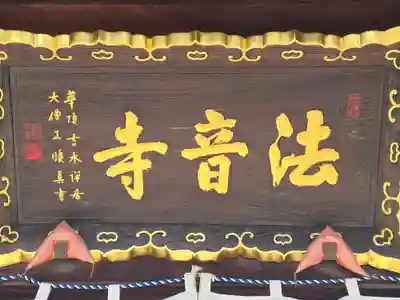 法音寺
華頂吉水詳香
大僧正順真書